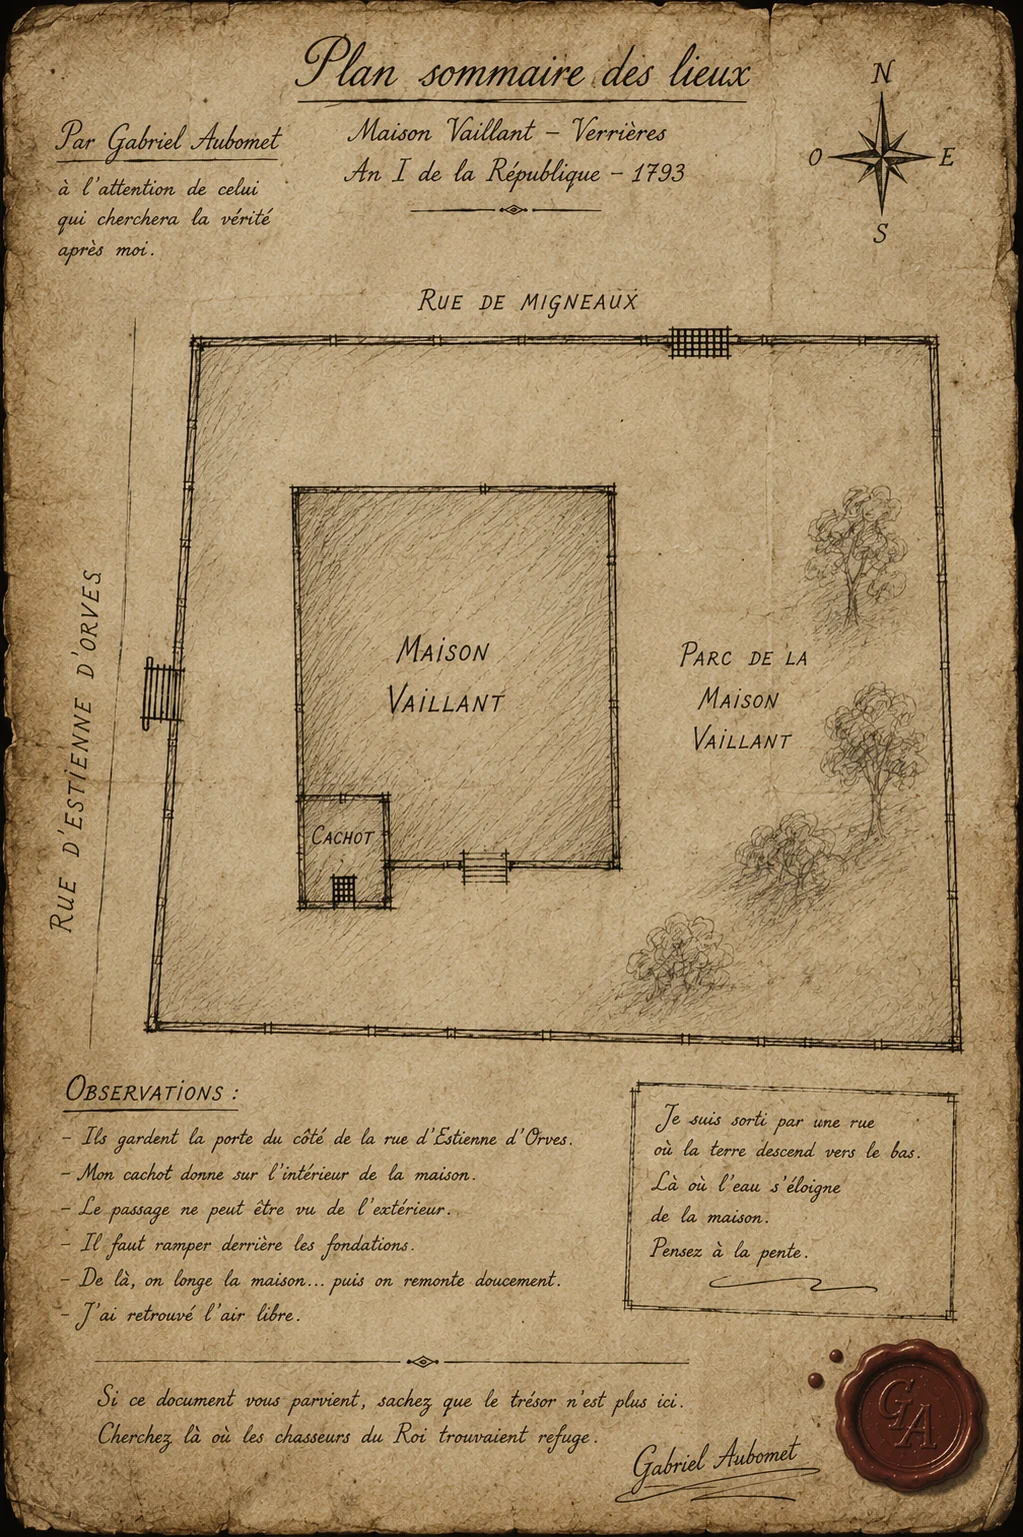 Plan sommaire des lieux
Maison Vaillant – Verrières
An I de la République – 1793
Par Gabriel Aubomet
à l'attention de celui
qui cherchera la vérité
après moi.
N
O
E
S
Rue de Migneaux
Rue d'Estienne d'Orves
Maison
Vaillant
Parc de la
Maison
Vaillant
Cachot
Observations :
– Ils gardent la porte du côté de la rue d'Estienne d'Orves.
– Mon cachot donne sur l'intérieur de la maison.
– Le passage ne peut être vu de l'extérieur.
– Il faut ramper derrière les fondations.
– De là, on longe la maison... puis on remonte doucement.
– J'ai retrouvé l'air libre.
Je suis sorti par une rue
où la terre descend vers le bas.
Là où l'eau s'éloigne
de la maison.
Pensez à la pente.
Si ce document vous parvient, sachez que le trésor n'est plus ici.
Cherchez là où les chasseurs du Roi trouvaient refuge.
Gabriel Aubomet
GA